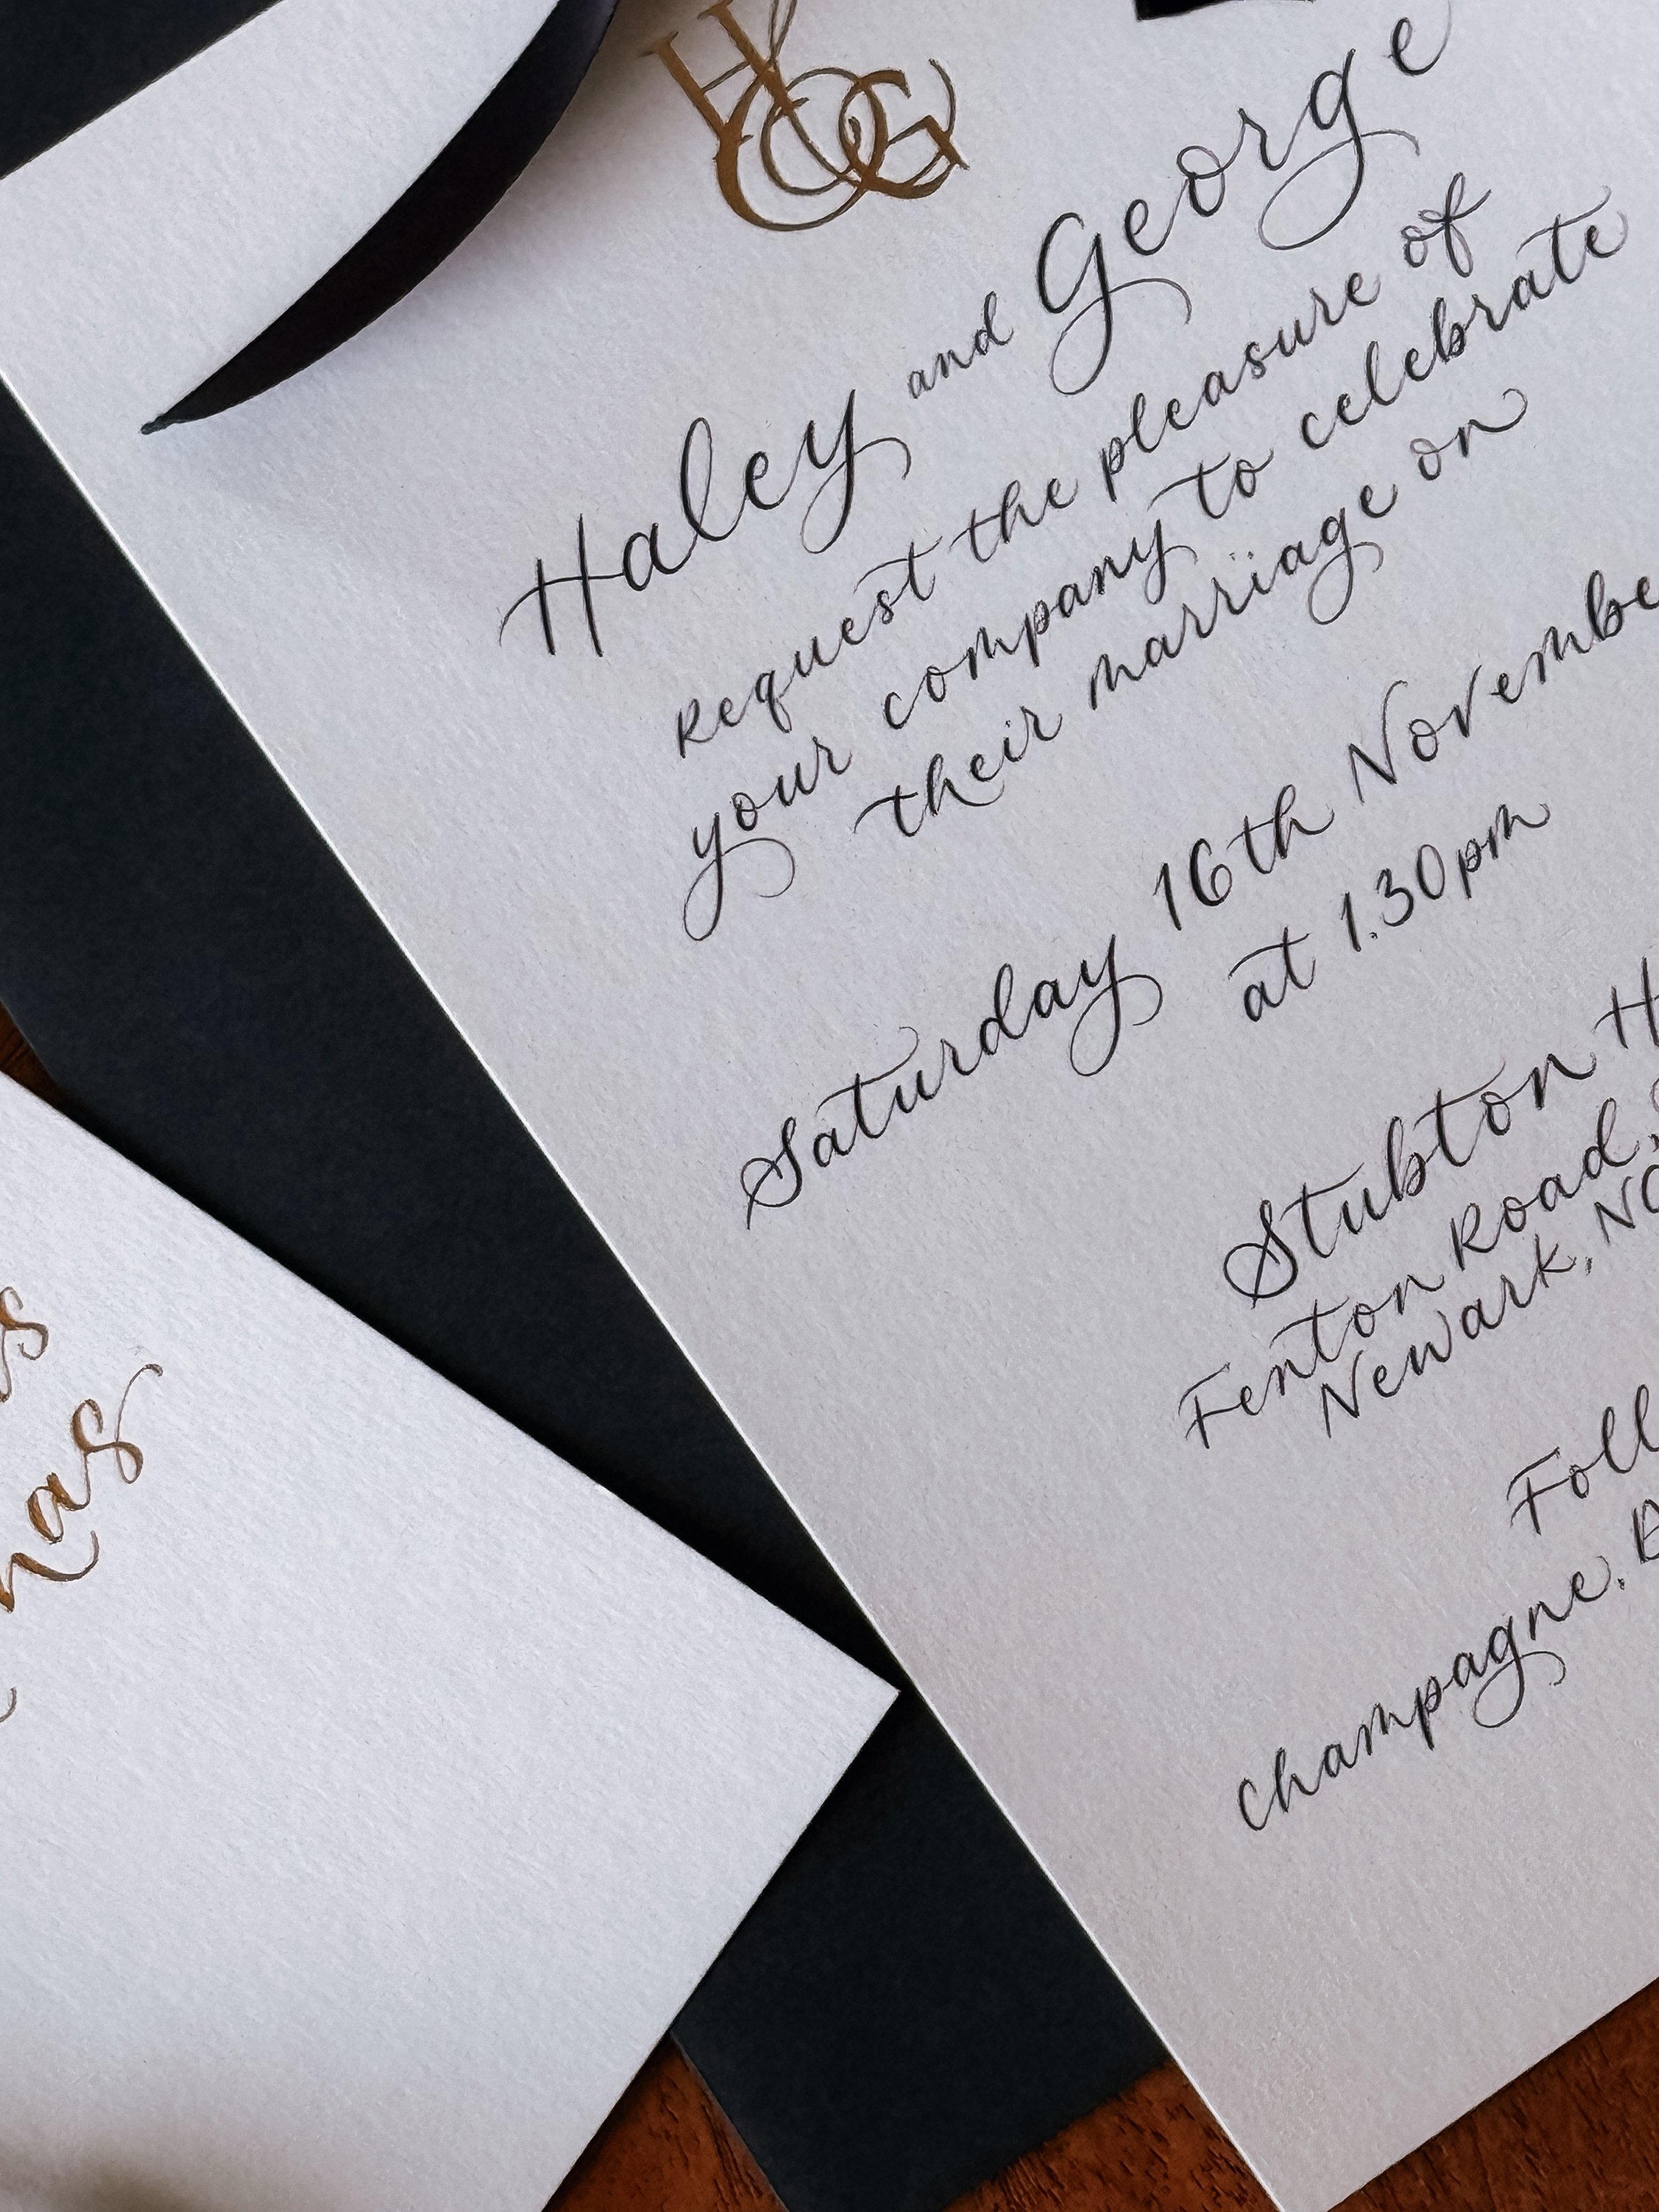 H&G
Haley and George
Request the pleasure of
your company to celebrate
their marriage on
Saturday 16th Novembe
at 1.30pm
Stubton H
Fenton Road,
Newark, NG
Foll
Champagne,
as